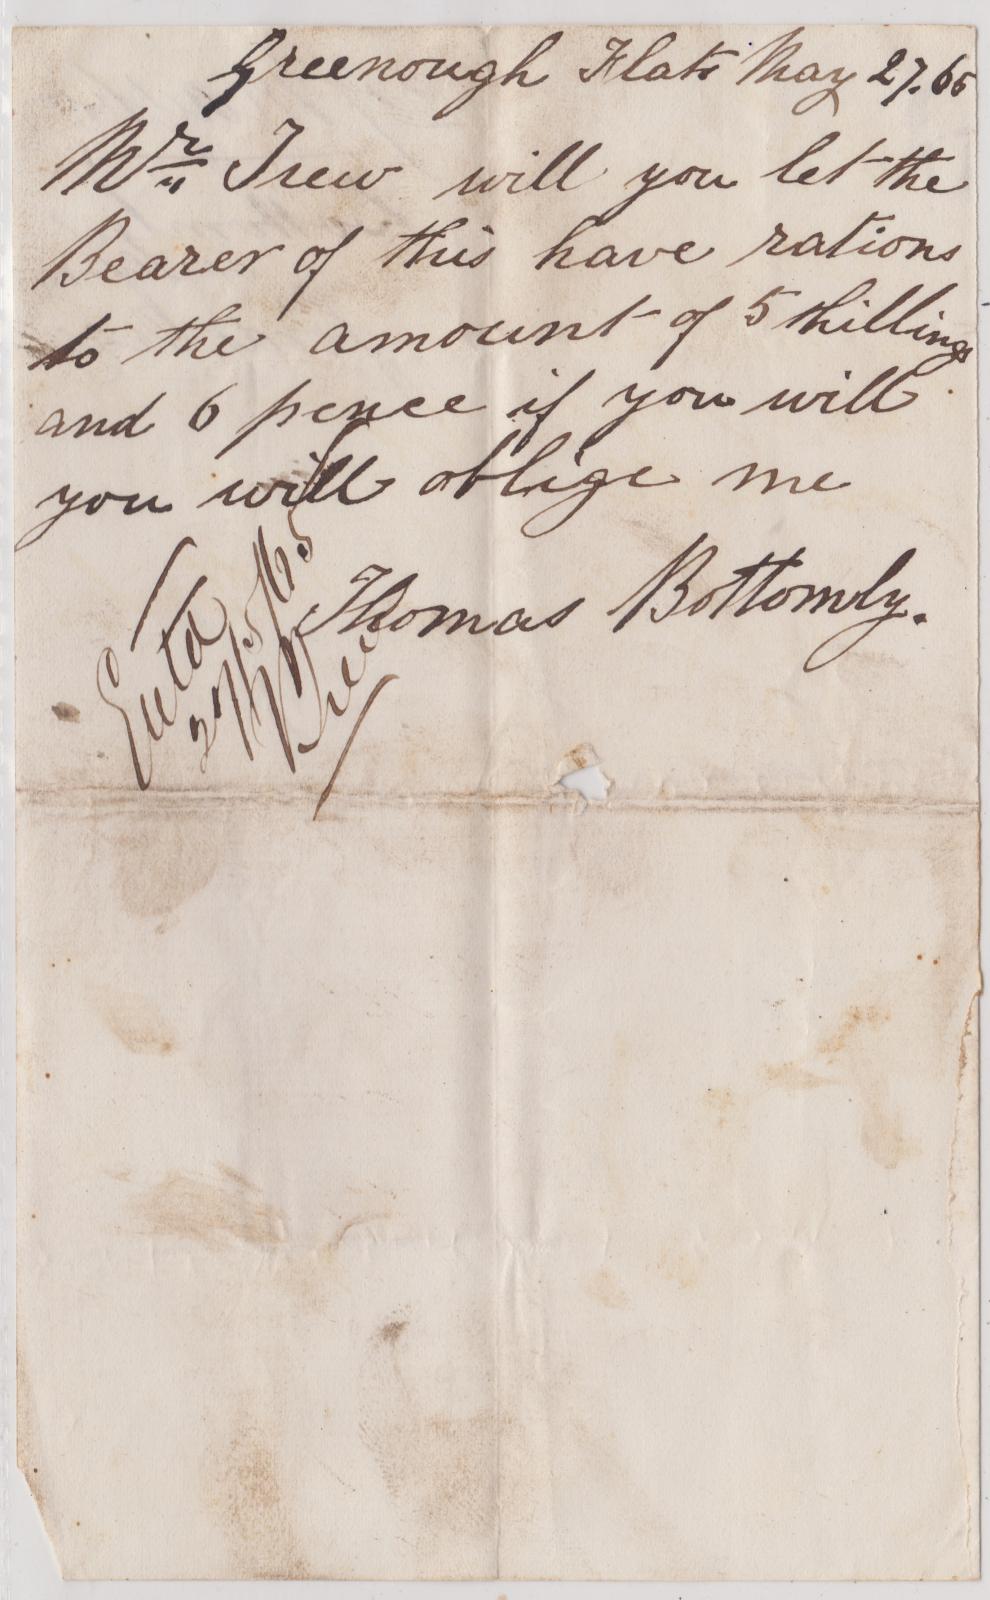 Greenough Flats May 27.65
Mr Trew will you let the
Bearer of this have rations
to the amount of 5 shillings
and 6 pence if you will
you will oblige me
Thomas Bottomly.
Entd
27/5/65